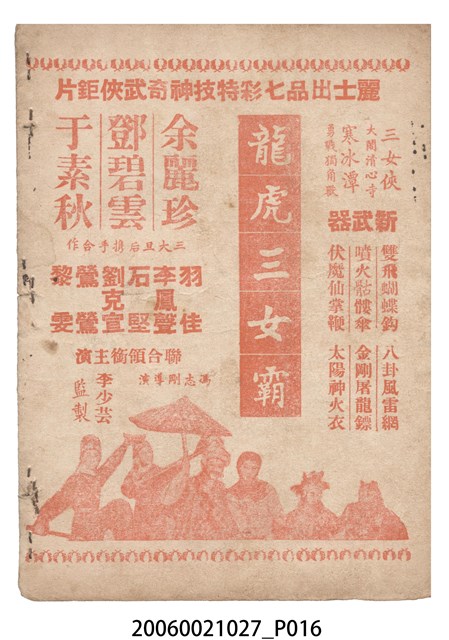 麗士出品七彩特技神奇武俠鉅片
三女俠
大鬧清心寺
寒冰潭
勇戰獨角獸
新武器
雙飛蝴蝶鈎 八卦風雷網
噴火骷髏傘 金剛屠龍鏢
伏魔仙掌鞭 太陽神火衣
龍虎三女霸
余麗珍
鄧碧雲
于素秋
三大旦后携手合作
羽佳
李鳳聲
石堅
劉克宣
鶯鶯
黎雯
聯合領銜主演
馮志剛導演
李少芸
監製
20060021027_P016